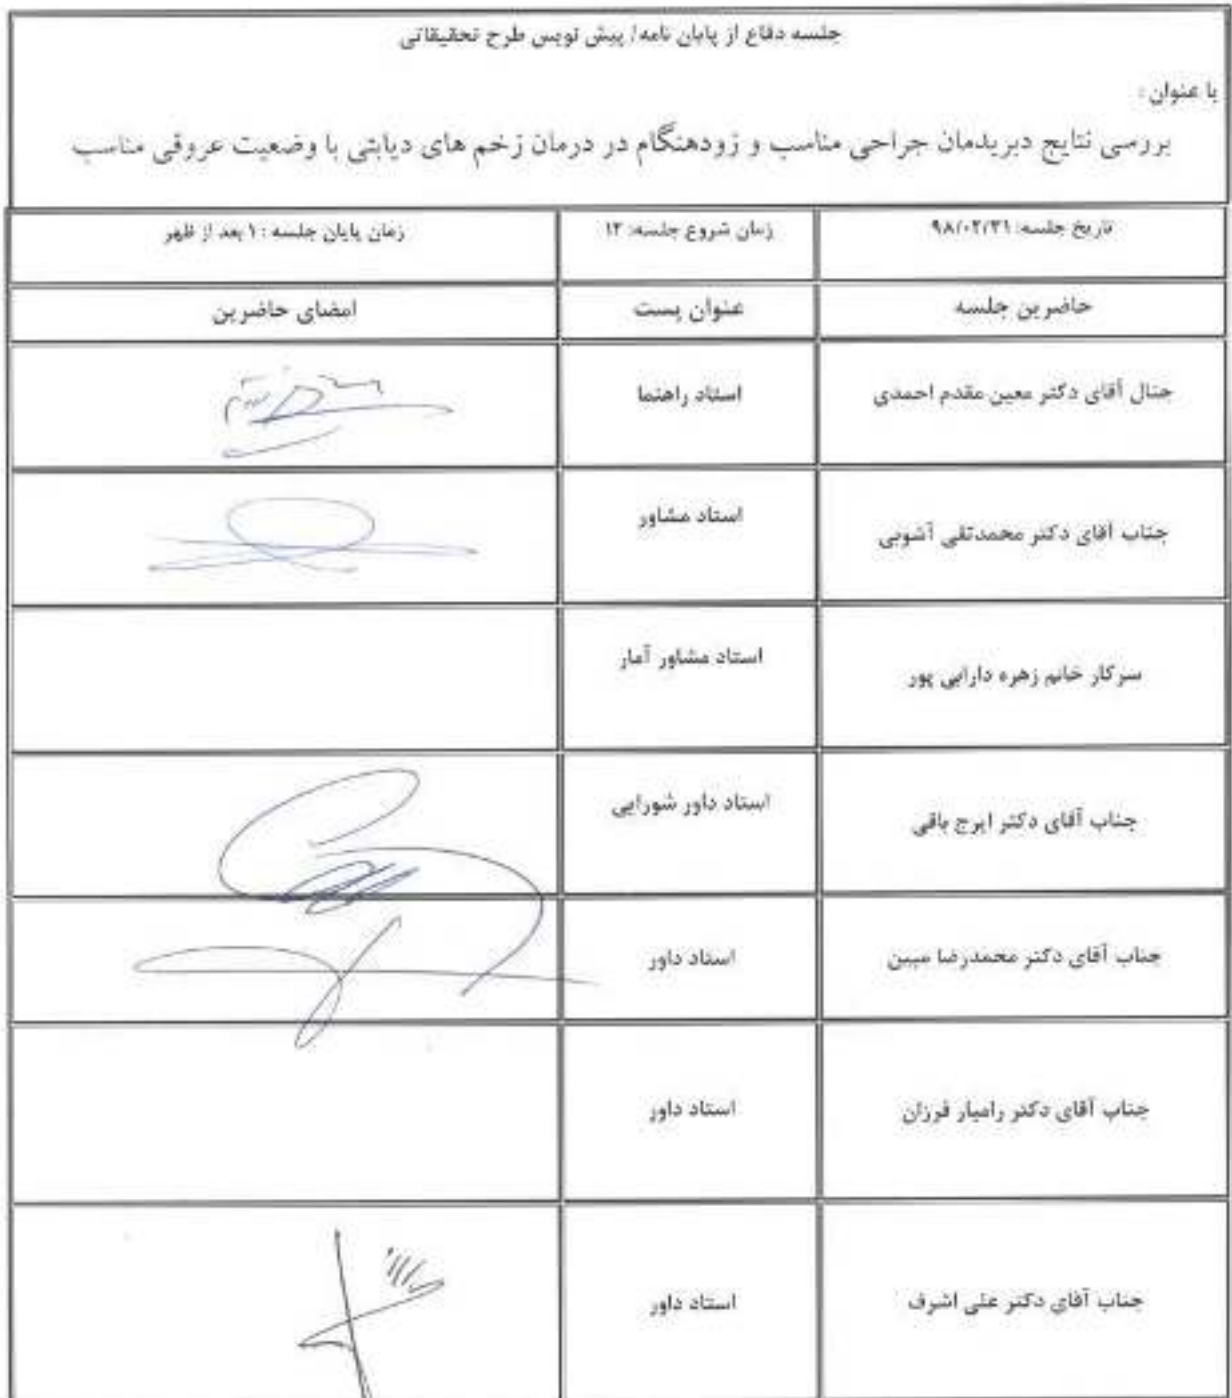 جلسه دفاع از پایان نامه/ پیش نویس طرح تحقیقاتی
با عنوان :
بررسی نتایج دبریدمان جراحی مناسب و زودهنگام در درمان زخم های دیابتی با وضعیت عروقی مناسب
تاریخ جلسه: ۹۸/۰۲/۳۱ زمان شروع جلسه: ۱۲ زمان پایان جلسه : ۱ بعد از ظهر
حاضرین جلسه عنوان پست امضای حاضرین
جنال آقای دکتر معین مقدم احمدی استاد راهنما
جناب آقای دکتر محمدتقی آشوبی استاد مشاور
سرکار خانم زهره دارابی پور استاد مشاور آمار
جناب آقای دکتر ایرج باقی استاد داور شورایی
جناب آقای دکتر محمدرضا مبین استاد داور
جناب آقای دکتر رامیار فرزان استاد داور
جناب آقای دکتر علی اشرف استاد داور